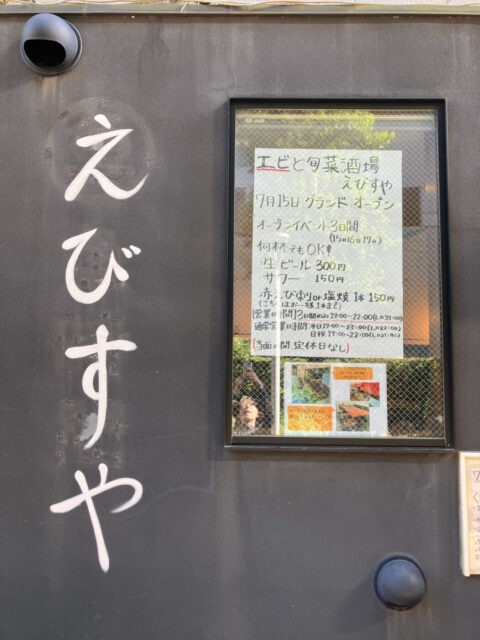 えびすや
エビと旬菜酒場
えびすや
7月15日 グランドオープン
オープンイベント3日間
(15日16日17日)
何杯でもOK!
生ビール 300円
サワー 150円
赤えび刺or塩焼 1本 150円
(こちらはお一様 1本まで)
[営業時間]3日間のみ17:00〜22:00(L.O21:00)
通常営業時間 平日17:00〜23:00(L.O22:00)
日祝 17:00〜22:00
(当面の間 定休日なし)